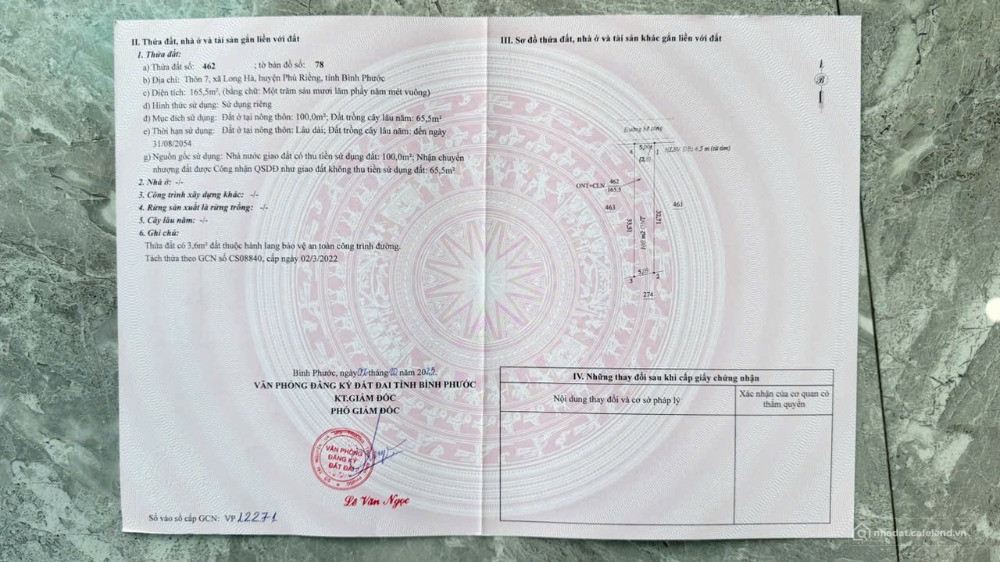 II. Thửa đất, nhà ở và tài sản gắn liền với đất
1. Thửa đất:
a) Thửa đất số: 462 ; tờ bản đồ số: 78
b) Địa chỉ: Thôn 7, xã Long Hà, huyện Phú Riềng, tỉnh Bình Phước
c) Diện tích: 165,5m², (bằng chữ: Một trăm sáu mươi lăm phẩy năm mét vuông)
d) Hình thức sử dụng: Sử dụng riêng
đ) Mục đích sử dụng: Đất ở tại nông thôn: 100,0m²; Đất trồng cây lâu năm: 65,5m²
e) Thời hạn sử dụng: Đất ở tại nông thôn: Lâu dài; Đất trồng cây lâu năm: đến ngày
31/08/2054
g) Nguồn gốc sử dụng: Nhà nước giao đất có thu tiền sử dụng đất: 100,0m²; Nhận chuyển
nhượng đất được Công nhận QSDĐ như giao đất không thu tiền sử dụng đất: 65,5m²
2. Nhà ở: -/-
3. Công trình xây dựng khác: -/-
4. Rừng sản xuất là rừng trồng: -/-
5. Cây lâu năm: -/-
6. Ghi chú:
Thửa đất có 3,6m² đất thuộc hành lang bảo vệ an toàn công trình đường.
Tách thửa theo GCN số CS08840, cấp ngày 02/3/2022
Bình Phước, ngày tháng năm
VĂN PHÒNG ĐĂNG KÝ ĐẤT ĐAI TỈNH BÌNH PHƯỚC
KT.GIÁM ĐỐC
PHÓ GIÁM ĐỐC
VĂN PHÒNG
ĐĂNG KÝ
ĐẤT ĐAI
Lê Văn Ngọc
Số vào sổ cấp GCN: VP 12271
III. Sơ đồ thửa đất, nhà ở và tài sản khác gắn liền với đất
B
Đường bê tông
4 1
HLBV ĐB: 4,5 m (từ tim)
ONT+CLN 462
165,5
463
461
33,51
3 2
274
IV. Những thay đổi sau khi cấp giấy chứng nhận
Nội dung thay đổi và cơ sở pháp lý
Xác nhận của cơ quan có
thẩm quyền
nhadat.cafeland.vn